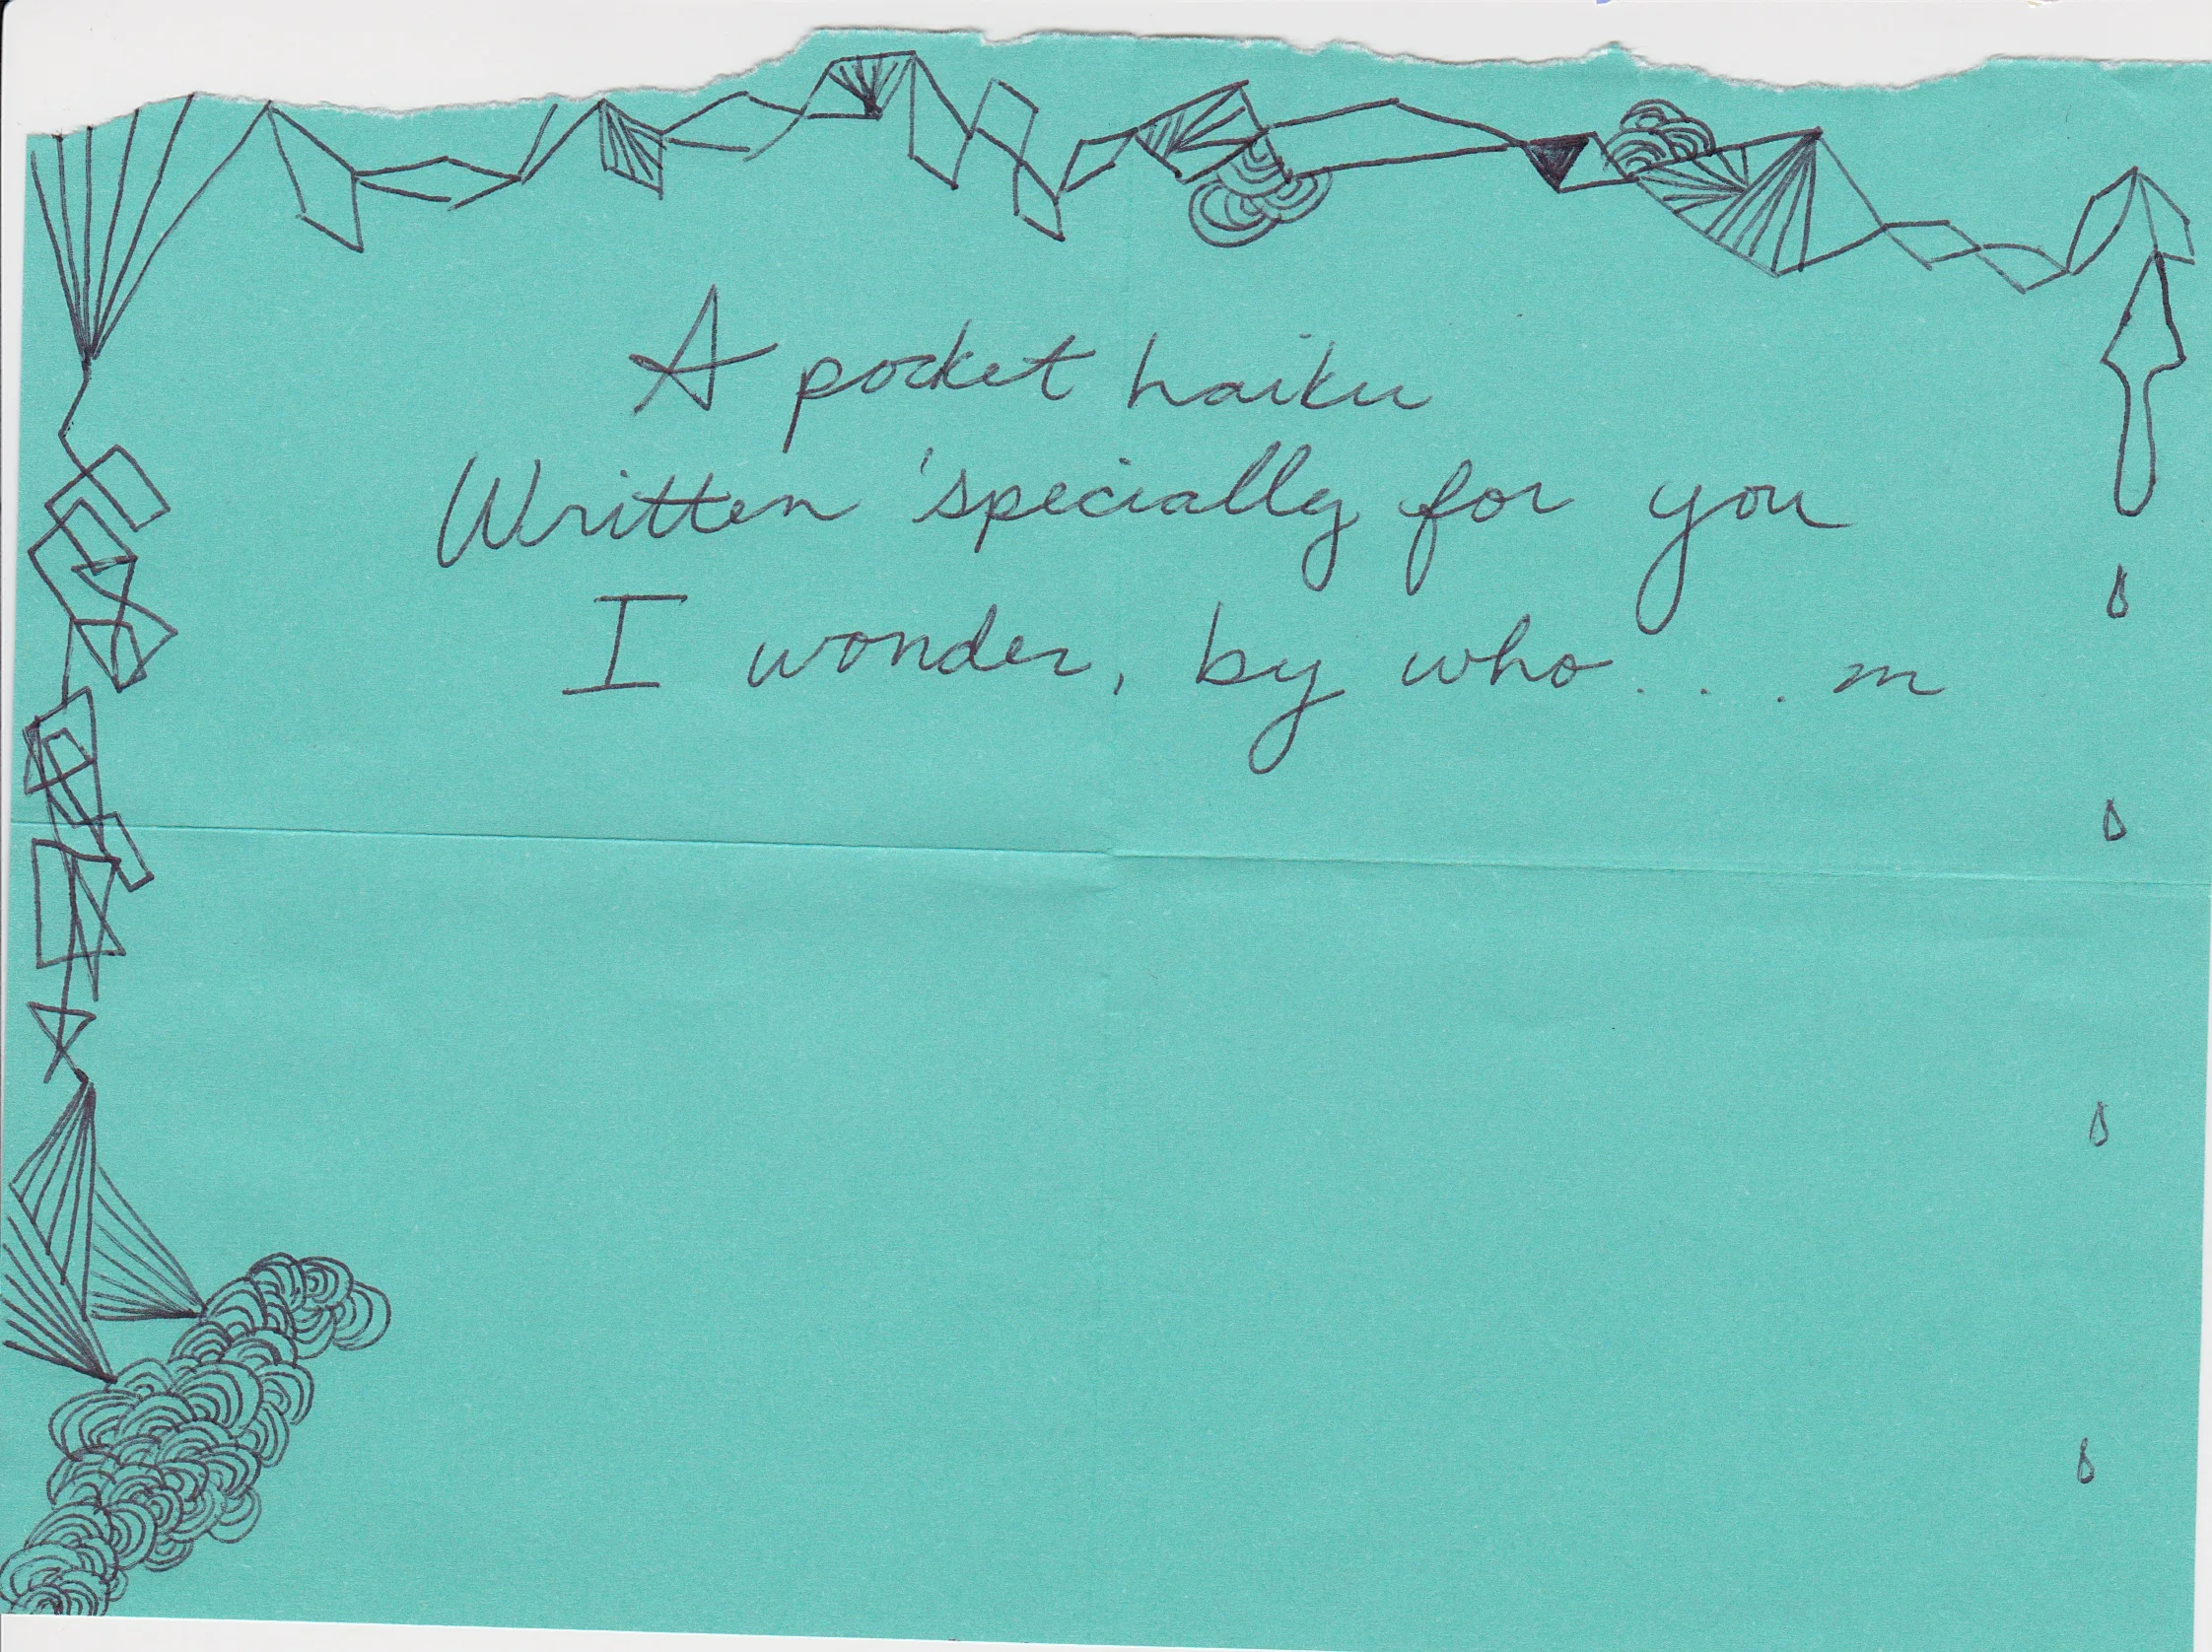 A pocket haiku
Written 'specially for you
I wonder, by who... m